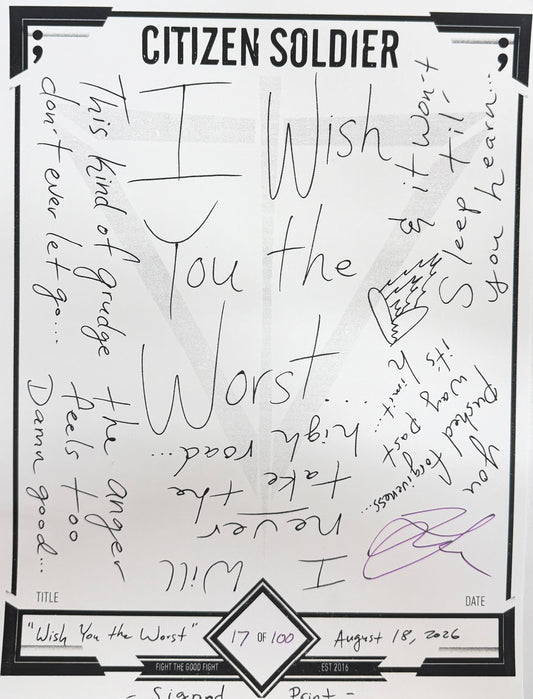 CITIZEN SOLDIER
I Wish
You the
Worst...
I Will
never
take the
high road...
This kind of grudge the anger
don't ever let go... feels too
Damn good...
& it won't
Sleep til'
you hearn...
You
pushed forgiveness...
way past
it's limit...
TITLE
DATE
"Wish You the Worst"
17 OF 100
August 18, 2026
FIGHT THE GOOD FIGHT
EST 2016
- Signed Print -